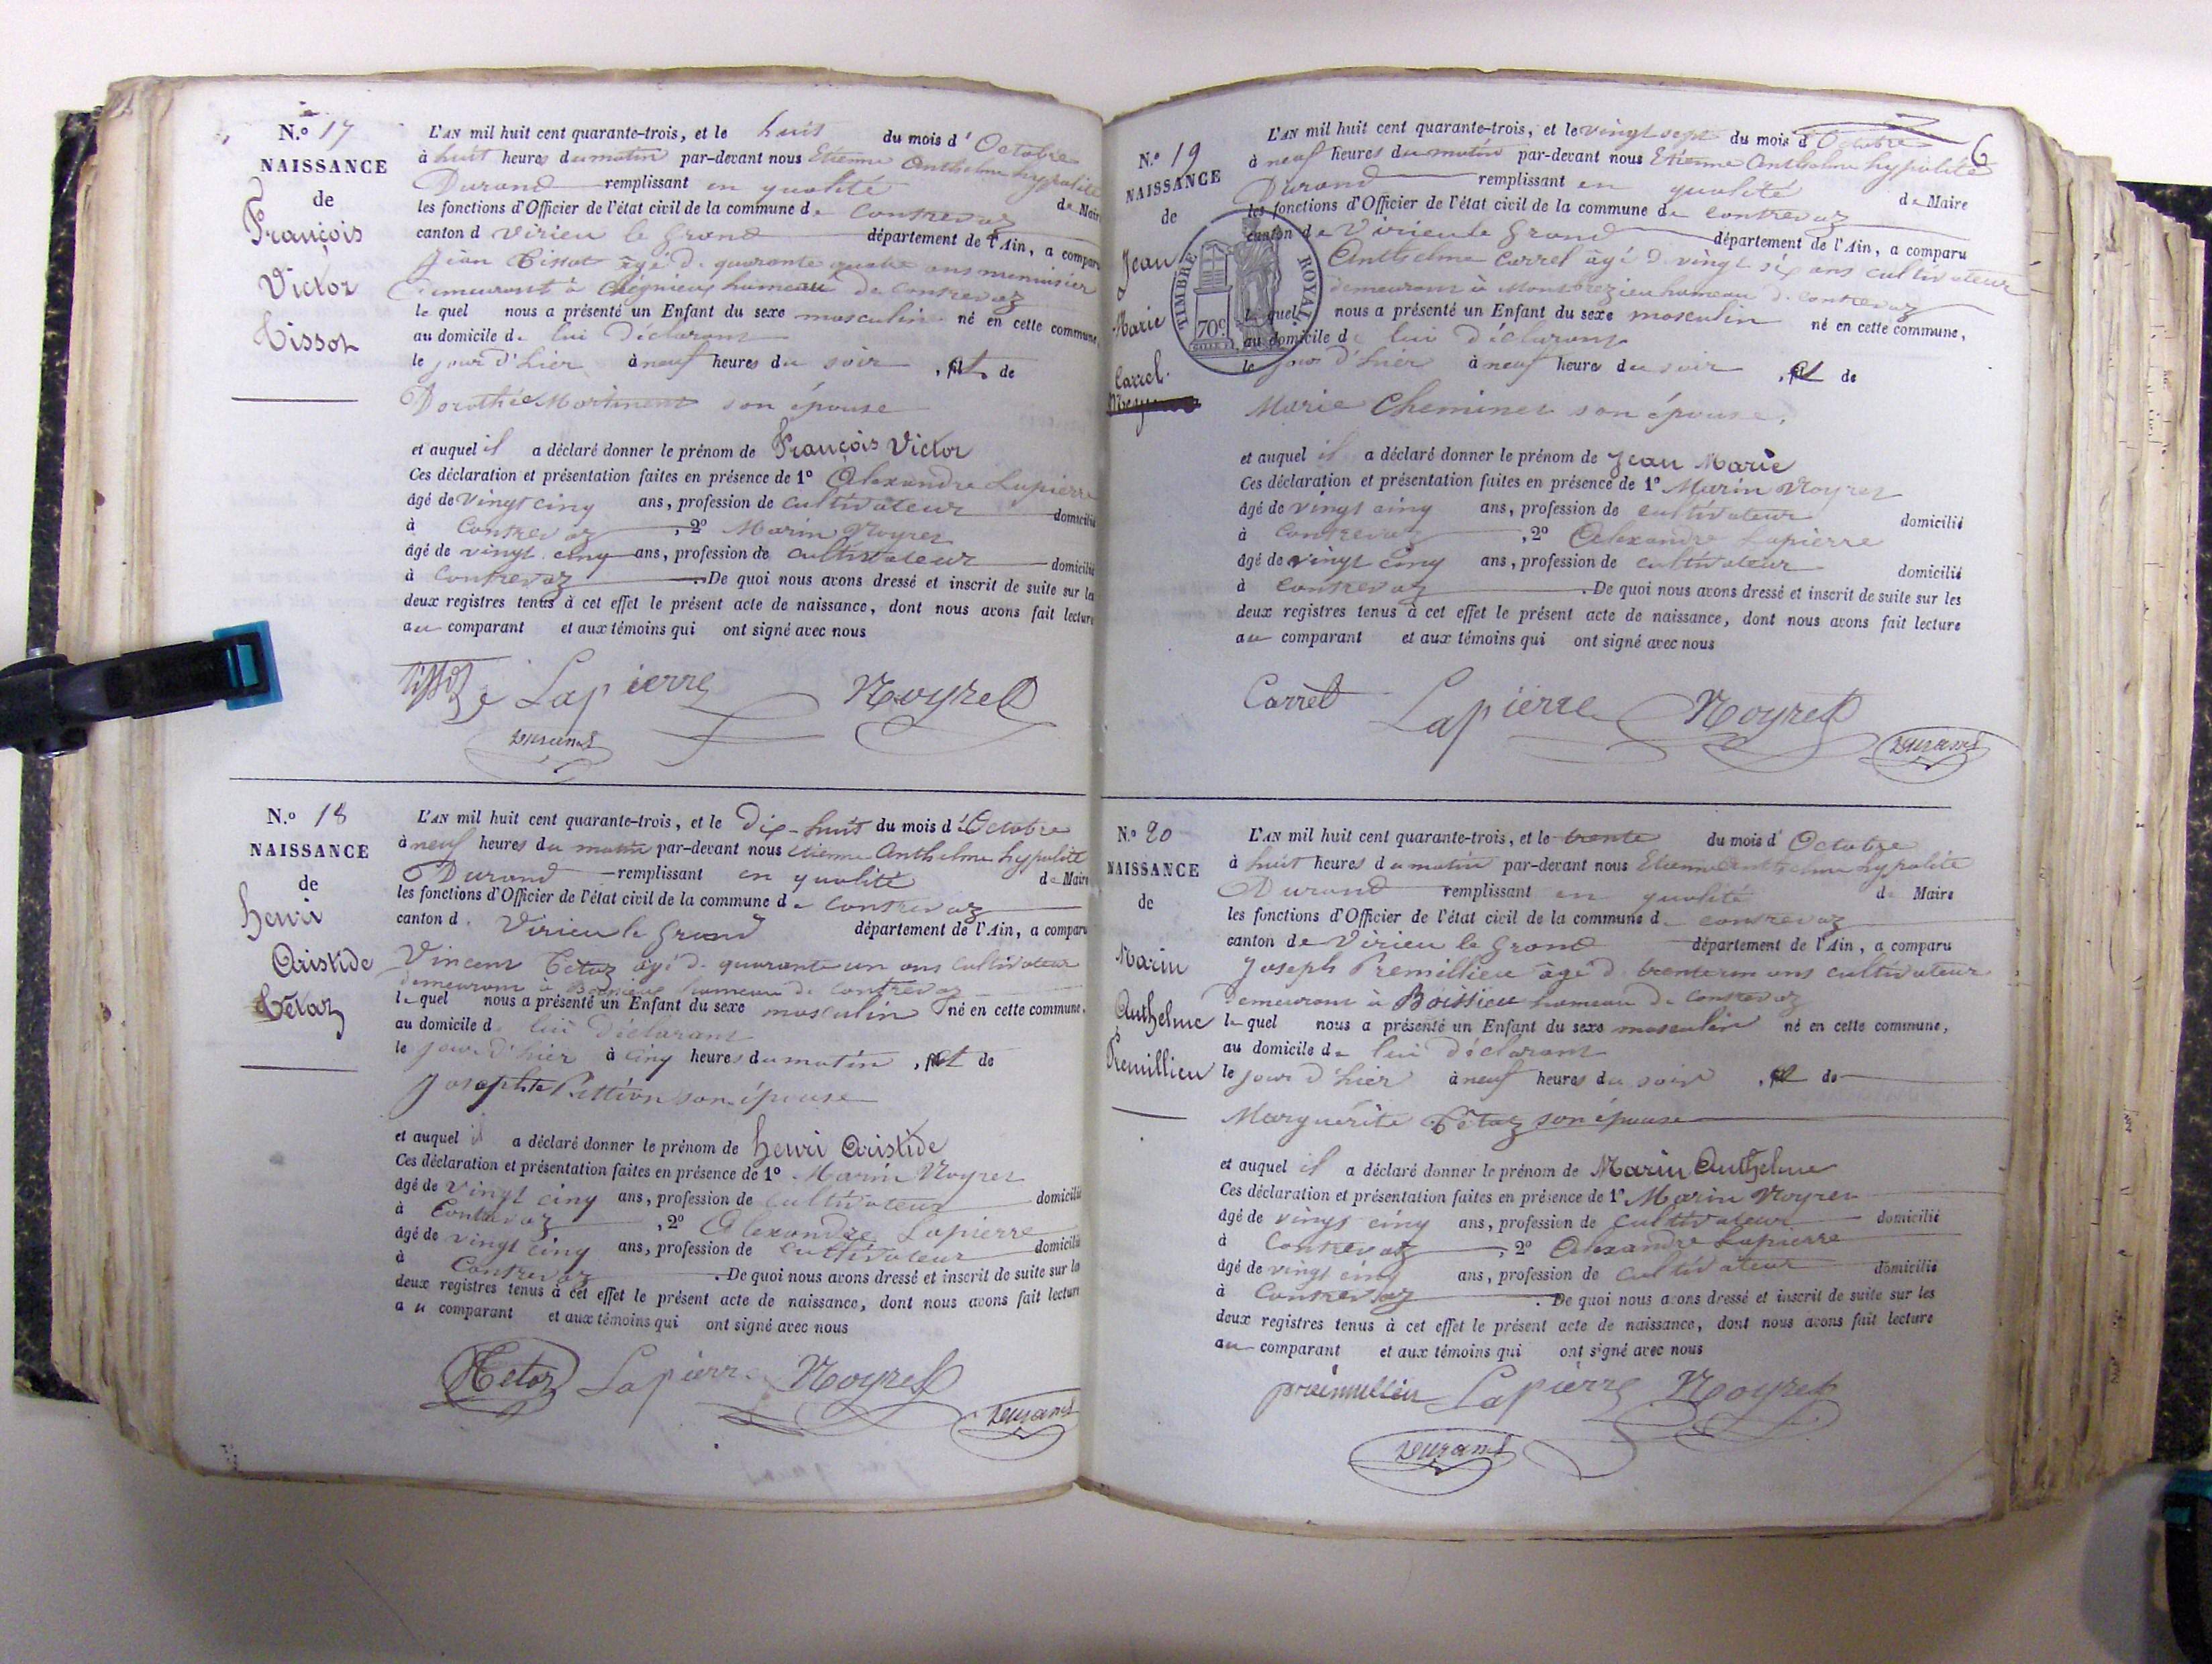 N.º 17
NAISSANCE
de
François
Victor
Tissot
L'AN mil huit cent quarante-trois, et le huit du mois d'Octobre
à huit heures du matin par-devant nous Etienne Anthelme hypolite
Durand remplissant en qualité de Maire
les fonctions d'Officier de l'état civil de la commune de Contrevoz
canton d Virieu le Grand département de l'Ain, a comparu
Jean Tissot âgé de quarante quatre ans menuisier
demeurant à Chegnieu hameau de Contrevoz
le quel nous a présenté un Enfant du sexe masculin né en cette commune,
au domicile de lui déclarant
le jour d'hier à neuf heures du soir, fils de
Dorothée Martinent son épouse
et auquel il a déclaré donner le prénom de François Victor
Ces déclaration et présentation faites en présence de 1º Alexandre Lapierre
âgé de vingt cinq ans, profession de cultivateur domicilié
à Contrevoz, 2º Marin Noyret
âgé de vingt cinq ans, profession de cultivateur domicilié
à Contrevoz. De quoi nous avons dressé et inscrit de suite sur les
deux registres tenus à cet effet le présent acte de naissance, dont nous avons fait lecture
au comparant et aux témoins qui ont signé avec nous
Tissot Lapierre Noyret
Durand
N.º 18
NAISSANCE
de
henri
Aristide
Tétaz
L'AN mil huit cent quarante-trois, et le Dix-huit du mois d'Octobre
à neuf heures du matin par-devant nous Etienne Anthelme hypolite
Durand remplissant en qualité de Maire
les fonctions d'Officier de l'état civil de la commune de Contrevoz
canton d. Virieu le Grand département de l'Ain, a comparu
Vincent Tétaz âgé de quarante un ans cultivateur
demeurant à hameau de Contrevoz
le quel nous a présenté un Enfant du sexe masculin né en cette commune,
au domicile de lui Déclarant
le jour d'hier à cinq heures du matin, fils de
Josephte Pettion son épouse
et auquel il a déclaré donner le prénom de henri Aristide
Ces déclaration et présentation faites en présence de 1º Marin Noyret
âgé de vingt cinq ans, profession de cultivateur domicilié
à Contrevoz, 2º Alexandre Lapierre
âgé de vingt cinq ans, profession de cultivateur domicilié
à Contrevoz. De quoi nous avons dressé et inscrit de suite sur les
deux registres tenus à cet effet le présent acte de naissance, dont nous avons fait lecture
au comparant et aux témoins qui ont signé avec nous
Tetaz Lapierre Noyret
Durand
6
N.º 19
NAISSANCE
de
Jean
Marie
Carrel
TIMBRE ROYAL
70c
L'AN mil huit cent quarante-trois, et le vingt sept du mois d'Octobre
à neuf heures du matin par-devant nous Etienne Anthelme hypolite
Durand remplissant en qualité de Maire
les fonctions d'Officier de l'état civil de la commune de Contrevoz
canton de Virieu le Grand département de l'Ain, a comparu
Anthelme Carrel âgé de vingt six ans cultivateur
demeurant à Montbrezieu hameau de Contrevoz
le quel nous a présenté un Enfant du sexe masculin né en cette commune,
au domicile de lui déclarant
le jour d'hier à neuf heures du soir, fils de
Marie Cheminet son épouse.
et auquel il a déclaré donner le prénom de Jean Marie
Ces déclaration et présentation faites en présence de 1º Marin Noyret
âgé de vingt cinq ans, profession de cultivateur domicilié
à Contrevoz, 2º Alexandre Lapierre
âgé de vingt cinq ans, profession de cultivateur domicilié
à Contrevoz. De quoi nous avons dressé et inscrit de suite sur les
deux registres tenus à cet effet le présent acte de naissance, dont nous avons fait lecture
au comparant et aux témoins qui ont signé avec nous
Carrel Lapierre Noyret
Durand
N.º 20
NAISSANCE
de
Marin
Anthelme
Premillieu
L'AN mil huit cent quarante-trois, et le trente du mois d'Octobre
à huit heures du matin par-devant nous Etienne Anthelme hypolite
Durand remplissant en qualité de Maire
les fonctions d'Officier de l'état civil de la commune de Contrevoz
canton de Virieu le Grand département de l'Ain, a comparu
Joseph Premillieu âgé de trente un ans cultivateur
demeurant à Boissieu hameau de Contrevoz
le quel nous a présenté un Enfant du sexe masculin né en cette commune,
au domicile de lui déclarant
le jour d'hier à neuf heures du soir, fils de
Marguérite Tétaz son épouse
et auquel il a déclaré donner le prénom de Marin Anthelme
Ces déclaration et présentation faites en présence de 1º Marin Noyret
âgé de vingt cinq ans, profession de cultivateur domicilié
à Contrevoz, 2º Alexandre Lapierre
âgé de vingt cinq ans, profession de cultivateur domicilié
à Contrevoz. De quoi nous avons dressé et inscrit de suite sur les
deux registres tenus à cet effet le présent acte de naissance, dont nous avons fait lecture
au comparant et aux témoins qui ont signé avec nous
premillieu Lapierre Noyret
Durand